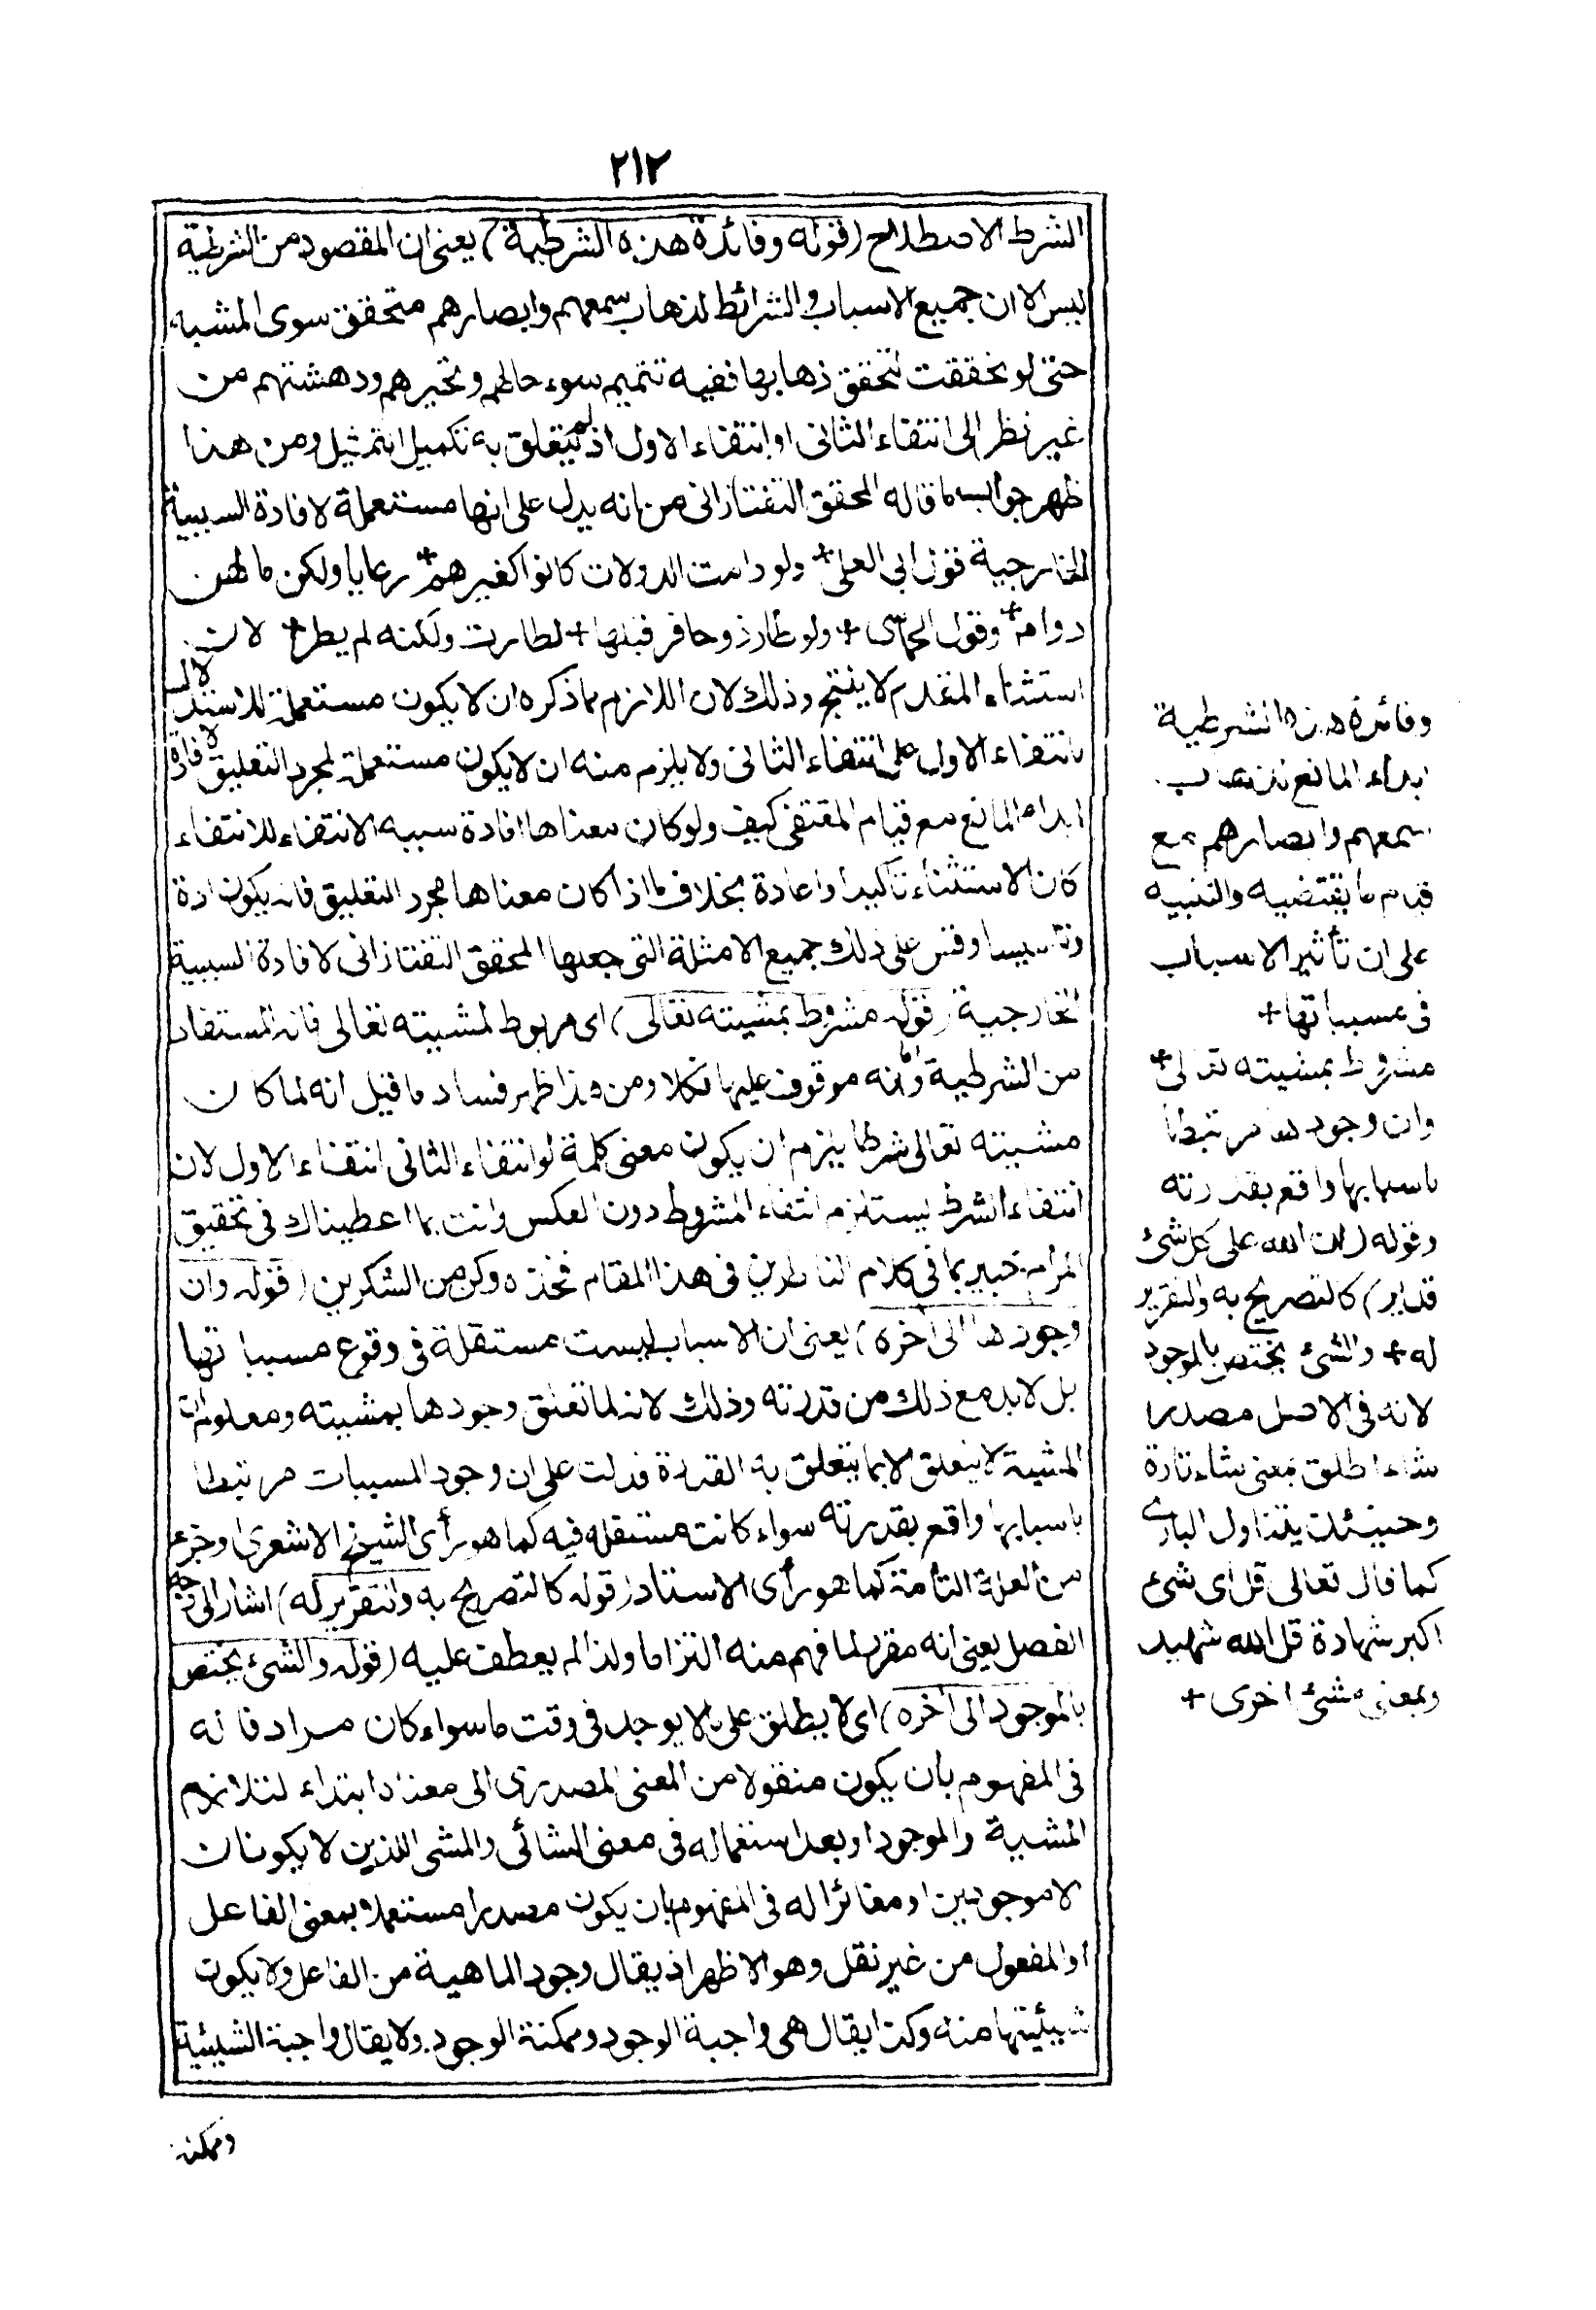 ٢١٢
الشرط الاصطلاح (قوله وفائدة هذه الشرطية) يعنى ان المقصود من الشرطية
ليس الا ان جميع الاسباب والشرائط لذهاب سمعهم وابصارهم متحقق سوى المشية
حتى لو تحققت لتحقق ذهابها ففيه تتميم سوء حالهم وتحيرهم ودهشتهم من
غير نظر الى انتفاء الثانى او انتفاء الاول اذ لم يتعلق به تكميل التمثيل ومن هذا
ظهر جواب ما قاله المحقق التفتازانى من انه يدل على انها مستعملة لافادة السببية
الخارجية قول ابى العلى + ولو دامت الدولات كانوا كغيرهم + رعايا ولكن ما لهن
دوام + وقول الحماسى + ولو طار ذو حافر قبلها + لطارت ولكنه لم يطر + لان
استثناء المقدم لا ينتج وذلك لان اللازم مما ذكره ان لا يكون مستعملة للاستدلال
بانتفاء الاول على انتفاء الثانى ولا يلزم منه ان لا يكون مستعملة لمجرد التعليق لافادة
ابداء المانع مع قيام المقتضى كيف ولو كان معناها افادة سببية الانتفاء للانتفاء
كان الاستثناء تاكيدا واعادة بخلاف ما اذا كان معناها مجرد التعليق فانه يكون افادة
وتاسيسا وقس على ذلك جميع الامثلة التى جعلها المحقق التفتازانى لافادة السببية
الخارجية (قوله مشروط بمشيته تعالى) اى مربوط لمشيته تعالى فانه المستفاد
من الشرطية واما انه موقوف عليها فكلا ومن هذا ظهر فساد ما قيل انه لما كان
مشيته تعالى شرطا يلزم ان يكون معنى كلمة لو انتفاء الثانى انتفاء الاول لان
انتفاء الشرط يستلزم انتفاء المشروط دون العكس وانت بما اعطيناك فى تحقيق
المرام خبير بما فى كلام الناظرين فى هذا المقام فخذه وكن من الشكرين (قوله وان
وجودها الى آخره) يعنى ان الاسباب ليست مستقلة فى وقوع مسبباتها
بل لا بد مع ذلك من قدرته وذلك لانه لما تعلق وجودها بمشيته ومعلوم ان
المشية لا يتعلق الا بما يتعلق به القدرة فدلت على ان وجود المسببات مرتبطا
باسبابها واقع بقدرته سواء كانت مستقله فيه كما هو رأى الشيخ الاشعرى او جزء
من العلة التامة كما هو رأى الاستاد (قوله كالتصريح به والتقرير له) اشار الى وجه
الفصل يعنى انه مقرر لما فهم منه التزاما ولذا لم يعطف عليه (قوله والشئ يختص
بالموجود الى آخره) اى لا يطلق على ما لا يوجد فى وقت ما سواء كان مرادفا له
فى المفهوم بان يكون منقولا من المعنى المصدرى الى معناه ابتداء لتلازم
المشية والموجود او بعد استعماله فى معنى الشائى والمشى اللذين لا يكونان
الا موجودين او مغائرا له فى المفهوم بان يكون مصدرا مستعملا بمعنى الفاعل
او المفعول من غير نقل وهو الاظهر اذ يقال وجود الماهية من الفاعل ولا يكون
شيئيتها منه وكذا يقال هى واجبة الوجود وممكنة الوجود ولا يقال واجبة الشيئية
وممكنة
وفائدة هذه الشرطية
ابداء المانع لذهاب
سمعهم وابصارهم مع
قيام ما يقتضيه والتنبيه
على ان تأثير الاسباب
فى مسبباتها +
مشروط بمشيته تعالى +
وان وجودها مرتبطا
باسبابها واقع بقدرته
وقوله (ان الله على كل شئ
قدير) كالتصريح به والتقرير
له + والشئ يختص بالموجود
لانه فى الاصل مصدر
شاء اطلق بمعنى شاء تارة
وحينئذ يتناول البارى
كما قال تعالى قل اى شئ
اكبر شهادة قل الله شهيد
وبمعنى مشئ اخرى +